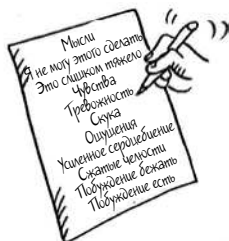 Мысли
Я не могу этого сделать
Это слишком тяжело
Чувства
Тревожность
Скука
Ощущения
Усиленное сердцебиение
Сжатые челюсти
Побуждение бежать
Побуждение есть